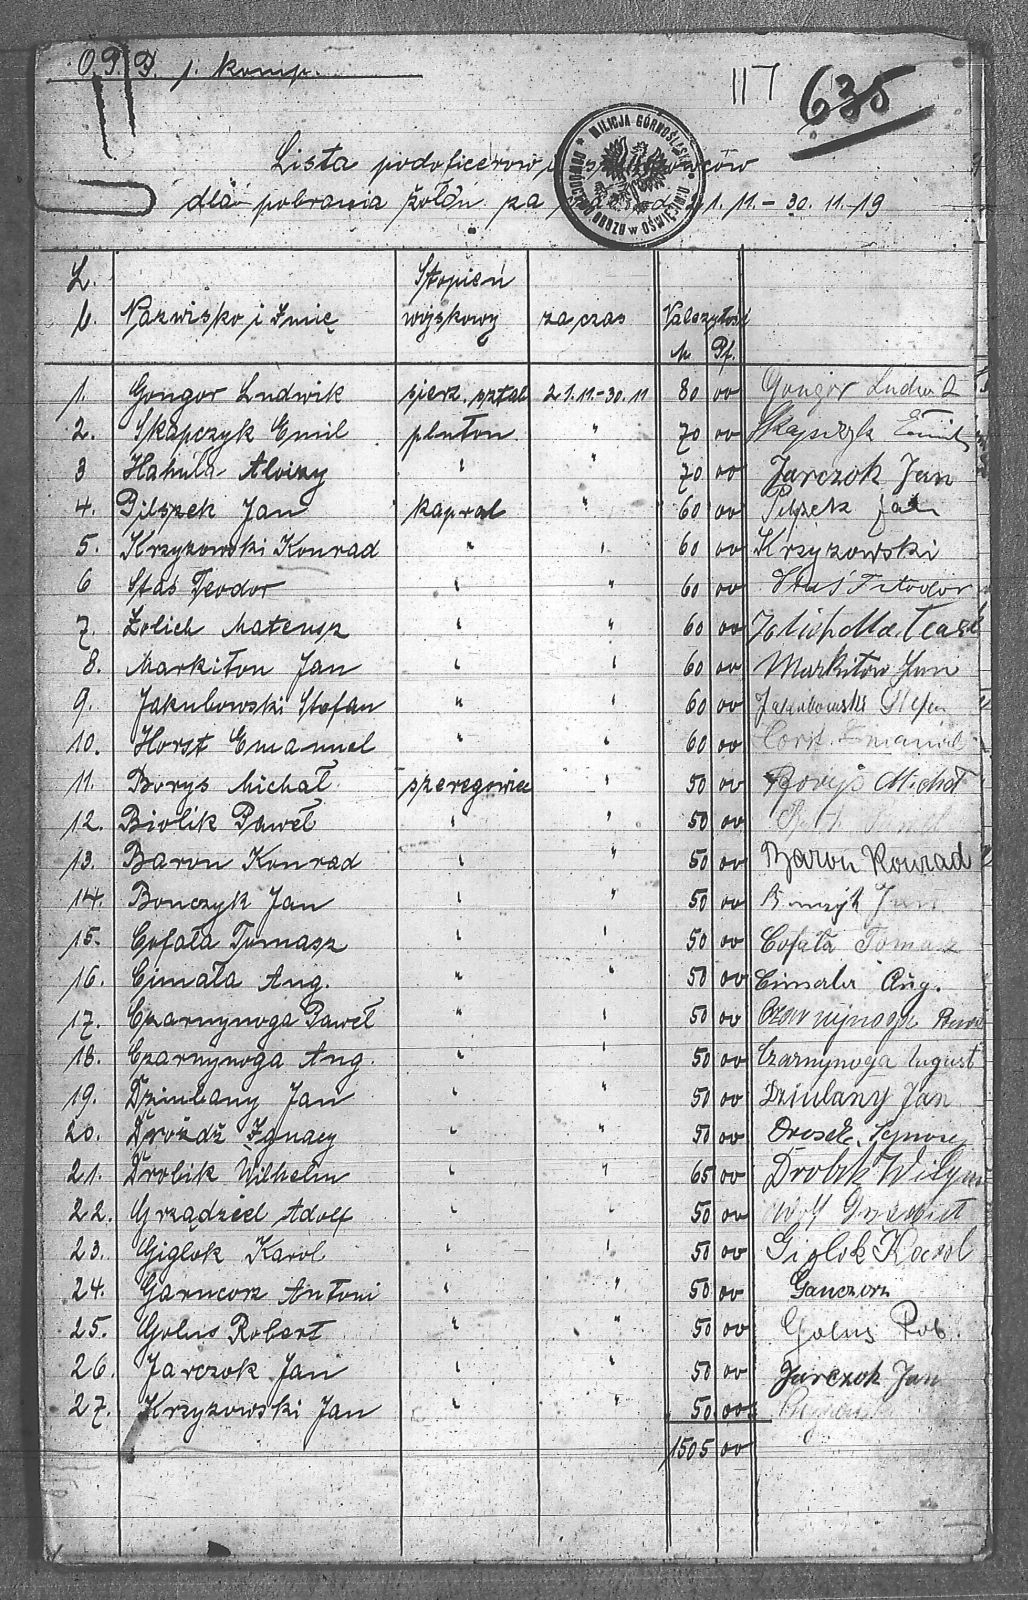 O.P.P. 1. komp.
117 635
MILICJA GÓRNOŚLĄSKA
DOWÓDZTWO OBOZU W OŚWIĘCIMIU
Lista podoficerów
dla pobrania żołdu za 21.11.-30.11.19
L. Stopień
b. Nazwisko i Imię wojskowy za czas Należytość
M. Pf.
1. Gongor Ludwik sierż. sztab 21.11.-30.11 80 00 Gongor Ludwik
2. Skapczyk Emil pluton " 70 00 Skapczyk Emil
3 Hahula Aloizy " " 70 00 Jarczok Jan
4. Pilszek Jan kapral " 60 00 Pilszek Jan
5. Krzyzowski Konrad " " 60 00 Krzyzowski
6 Staś Teodor " " 60 00 Staś Teodor
7. Zolich Mateusz " " 60 00
8. Markiton Jan " " 60 00 Markiton Jan
9. Jakubowski Stefan " " 60 00 Jakubowski Stefan
10. Horst Emanuel " " 60 00 Emanuel
11. Borys Michał szeregowiec " 50 00 Borys Michał
12. Biolik Paweł " " 50 00
13. Baron Konrad " " 50 00 Baron Konrad
14. Bonczyk Jan " " 50 00 Bonczyk Jan
15. Cofała Tomasz " " 50 00 Cofała Tomasz
16. Cimała Aug. " " 50 00 Cimala Aug.
17. Czarnynoga Paweł " " 50 00 Czarnynoga
18. Czarnynoga Aug. " " 50 00 Czarnynoga August
19. Dziubany Jan " " 50 00 Dziubany Jan
20. Drożdż Ignacy " " 50 00
21. Drobik Wilhelm " " 65 00 Drobik
22. Grządziel Adolf " " 50 00
23. Giglok Karol " " 50 00 Giglok Karol
24. Garncorz Antoni " " 50 00 Ganczorz
25. Golus Robert " " 50 00 Golus Rob.
26. Jarczok Jan " " 50 00 Jarczok Jan
27. Krzyzowski Jan " " 50 00
1505 00